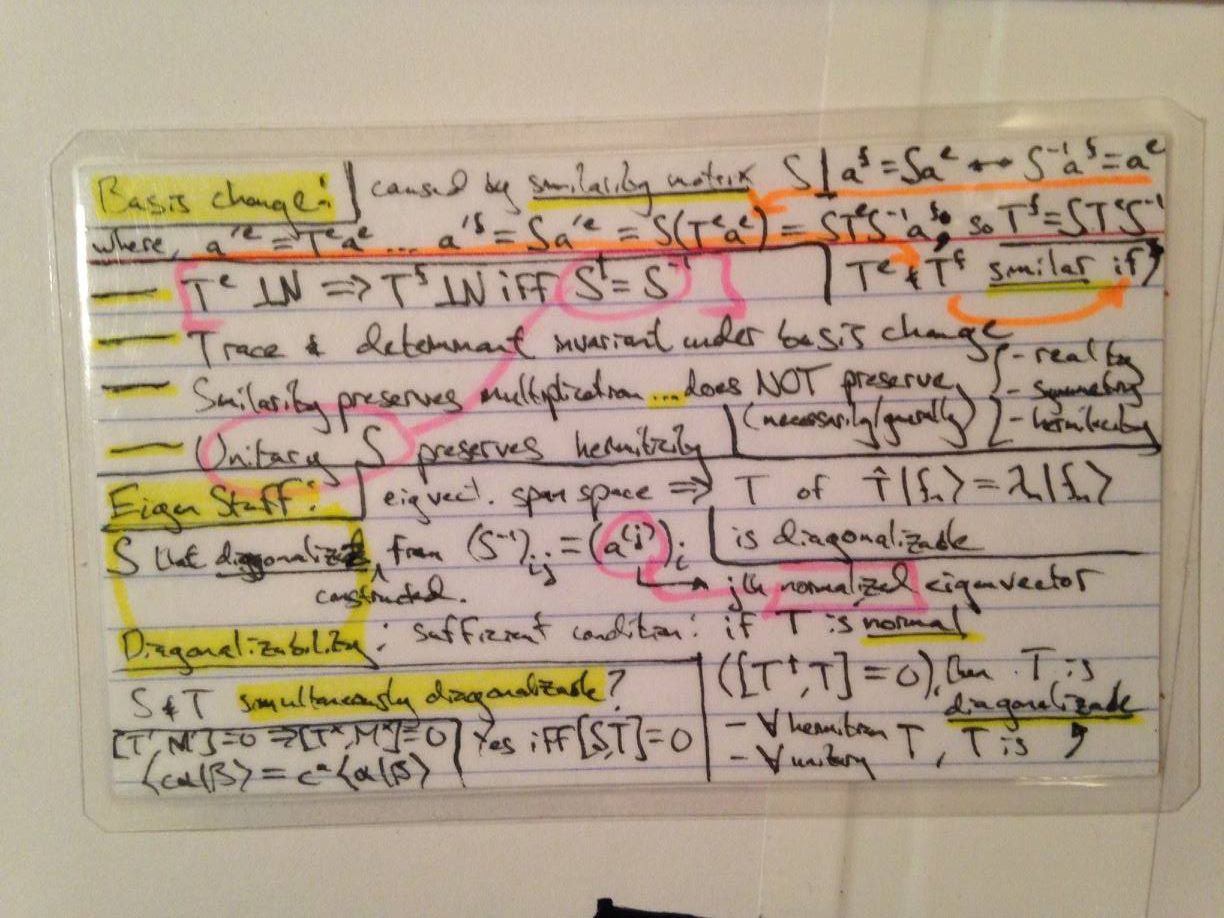 Basis change: caused by similarity matrix S | aᶠ = Saᵉ ↔ S⁻¹aᶠ = aᵉ
where, a'ᵉ = Tᵉaᵉ ... a'ᶠ = Sa'ᵉ = S(Tᵉaᵉ) = STᵉS⁻¹aᶠ, so Tᶠ = STᵉS⁻¹
— [Tᵉ ⊥N ⇒ Tᶠ ⊥N iff S† = S⁻¹]
Tᵉ & Tᶠ similar if
— Trace & determinant invariant under basis change
— Similarity preserves multiplication ... does NOT preserve,
(necessarily/generally)
- reality
- symmetry
- hermiticity
— Unitary S preserves hermiticity
Eigen Stuff: eigvect. span space ⇒ T of T̂|fₙ⟩ = λₙ|fₙ⟩
is diagonalizable
S that diagonalizes, from (S⁻¹)ᵢⱼ = (a⁽ʲ⁾)ᵢ
constructed.
jth normalized eigenvector
Diagonalizability: sufficient condition: if T is normal
([T†,T] = 0), then T is
diagonalizable
- ∀ hermitian T, T is
- ∀ unitary
S & T simultaneously diagonalizable?
Yes iff [S,T] = 0
[T',M'] = 0 ⇒ [Tˣ,Mˣ] = 0
⟨cα|β⟩ = c*⟨α|β⟩